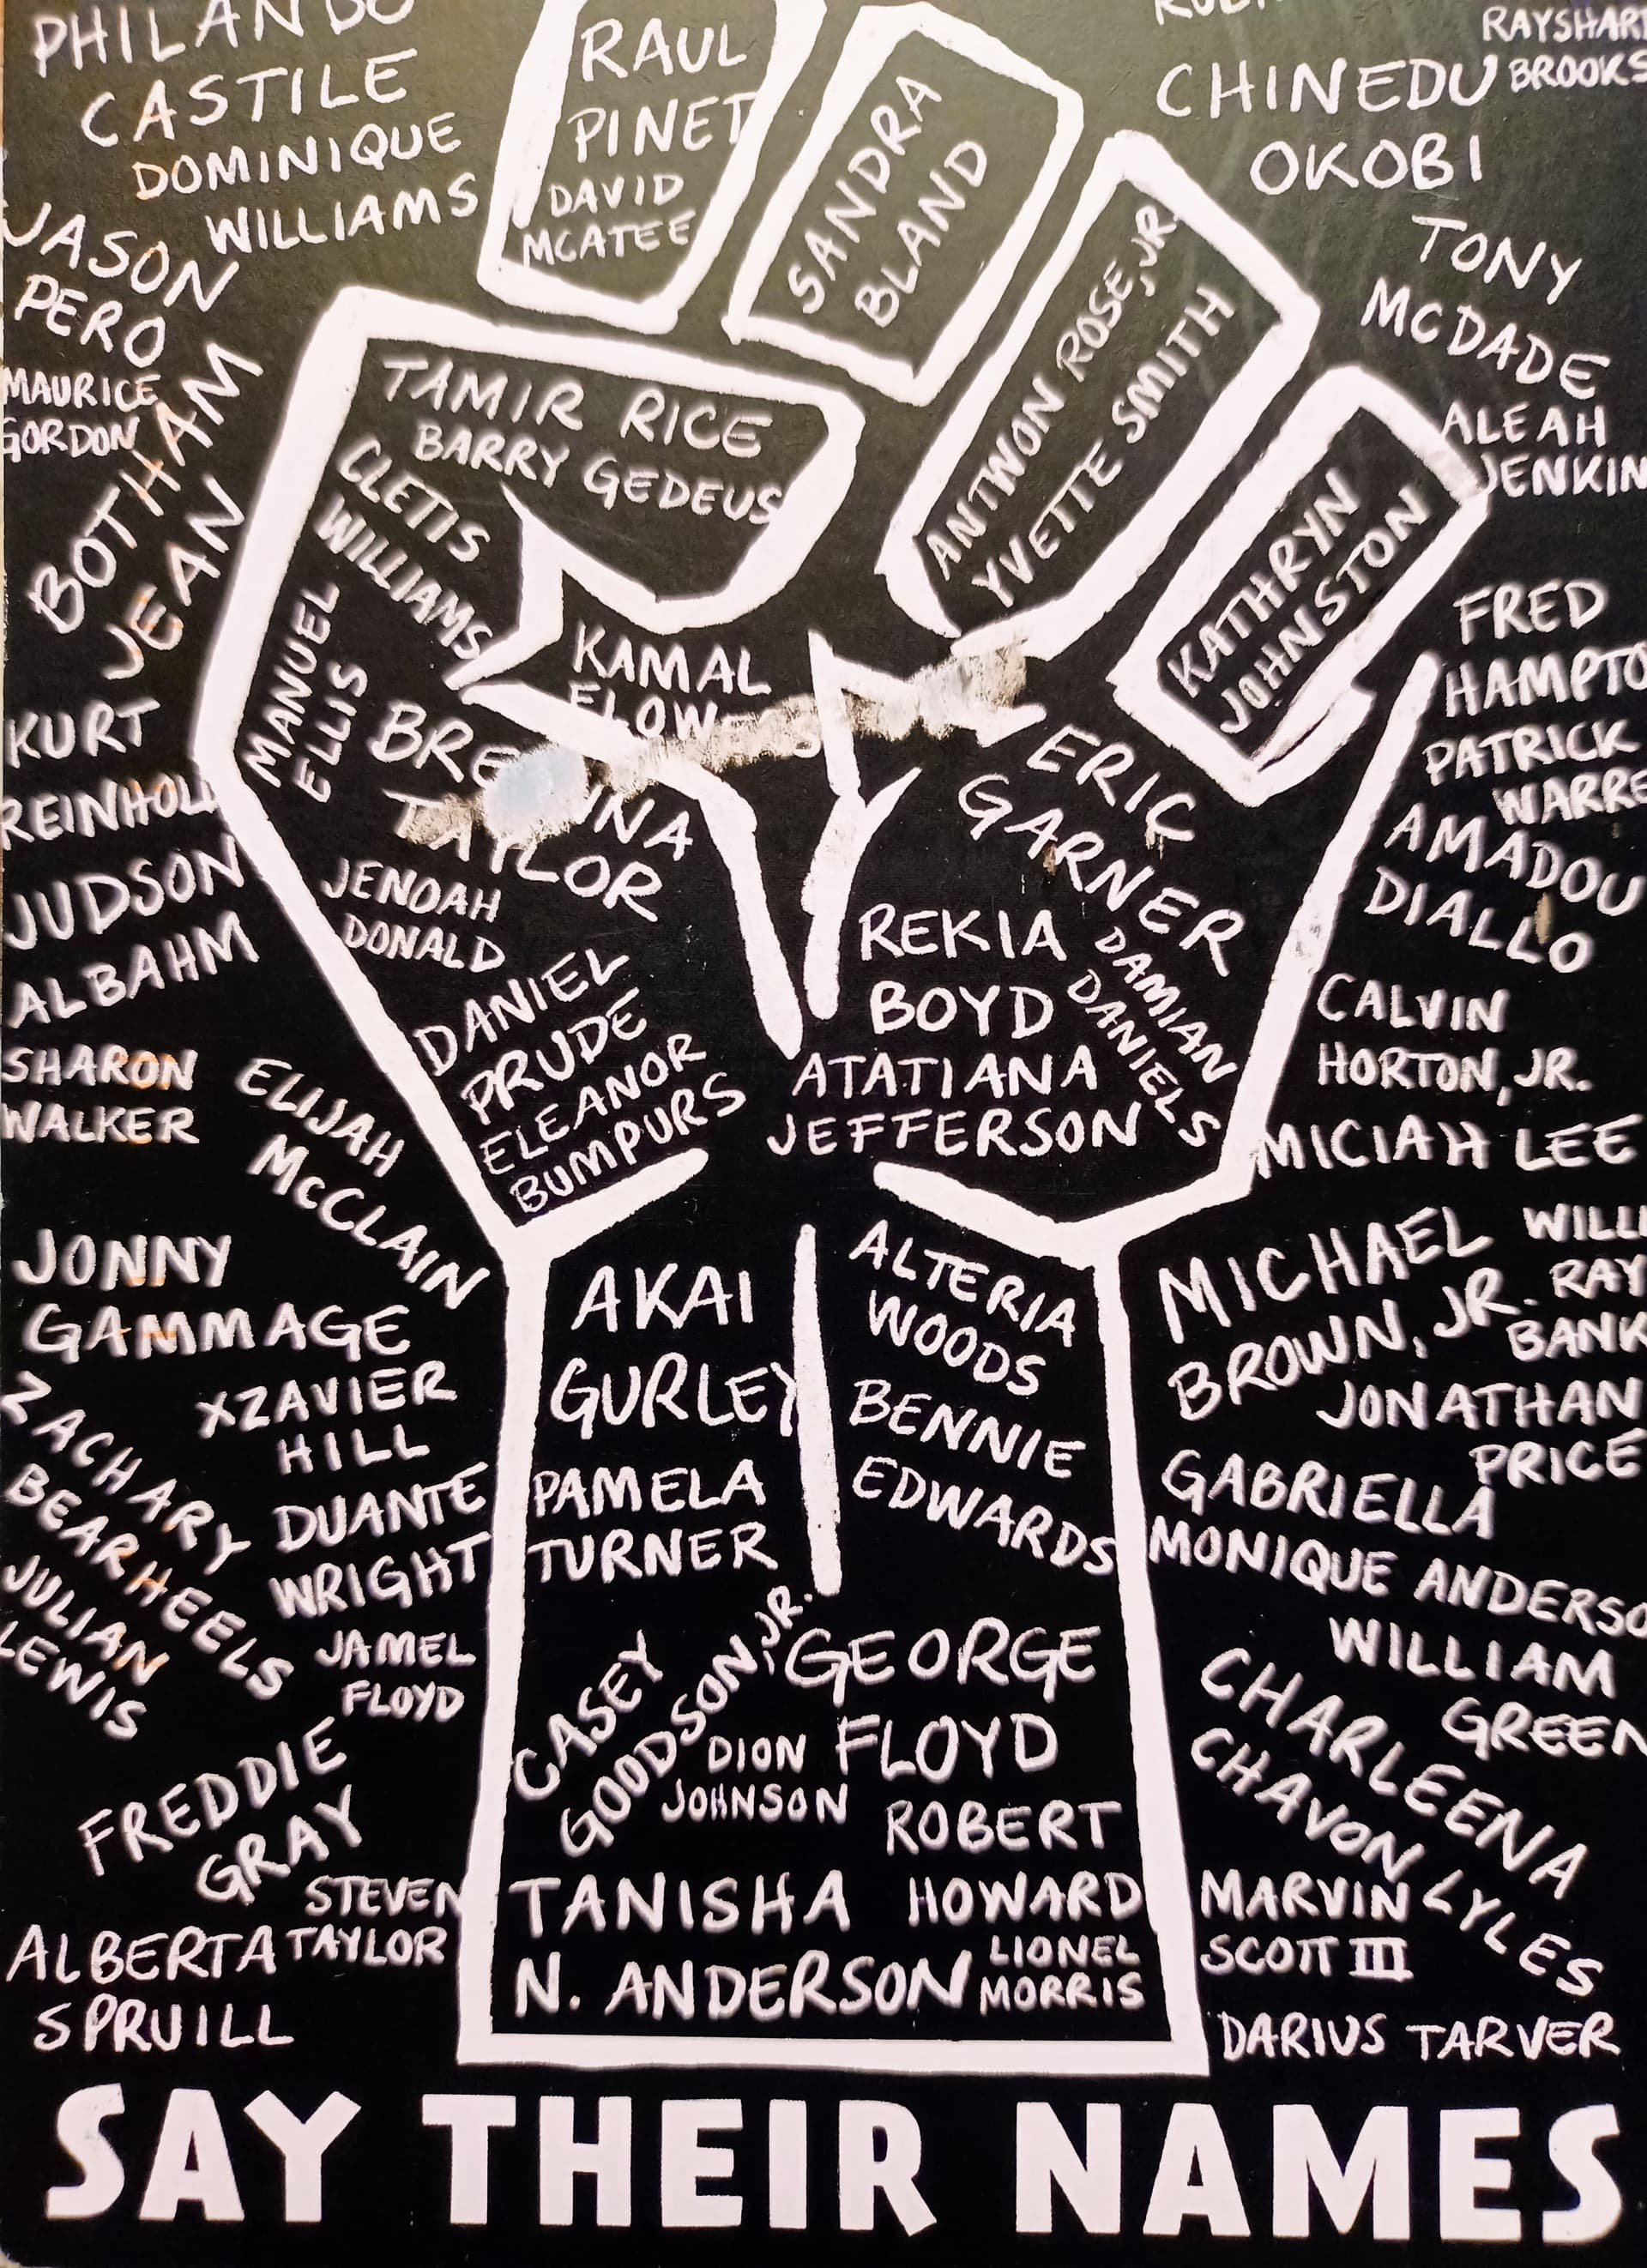 PHILANDO
CASTILE
DOMINIQUE
WILLIAMS
JASON
PERO
MAURICE
GORDON
BOTHAM
JEAN
KURT
REINHOLD
JUDSON
ALBAHM
SHARON
WALKER
ELIJAH
McCLAIN
JONNY
GAMMAGE
XZAVIER
HILL
ZACHARY
BEARHEELS
DUANTE
WRIGHT
JULIAN
LEWIS
JAMEL
FLOYD
FREDDIE
GRAY
STEVEN
TAYLOR
ALBERTA
SPRUILL
RAUL
PINET
DAVID
MCATEE
SANDRA
BLAND
ANTWON ROSE, JR.
YVETTE SMITH
KATHRYN
JOHNSTON
TAMIR RICE
BARRY GEDEUS
CLETIS
WILLIAMS
MANUEL
ELLIS
KAMAL
FLOWERS
BREONNA
TAYLOR
JENOAH
DONALD
DANIEL
PRUDE
ELEANOR
BUMPURS
ERIC
GARNER
DAMIAN
DANIELS
REKIA
BOYD
ATATIANA
JEFFERSON
AKAI
GURLEY
PAMELA
TURNER
ALTERIA
WOODS
BENNIE
EDWARDS
CASEY
GOODSON, JR.
GEORGE
FLOYD
DION
JOHNSON
ROBERT
HOWARD
TANISHA
N. ANDERSON
LIONEL
MORRIS
RAYSHAR
BROOKS
CHINEDU
OKOBI
TONY
McDADE
ALEAH
JENKIN
FRED
HAMPTO
PATRICK
WARRE
AMADOU
DIALLO
CALVIN
HORTON, JR.
MICIAH LEE
MICHAEL
BROWN, JR.
WILLI
RAY
BANK
JONATHAN
PRICE
GABRIELLA
MONIQUE ANDERSO
WILLIAM
GREEN
CHARLEENA
CHAVON LYLES
MARVIN
SCOTT III
DARIUS TARVER
SAY THEIR NAMES